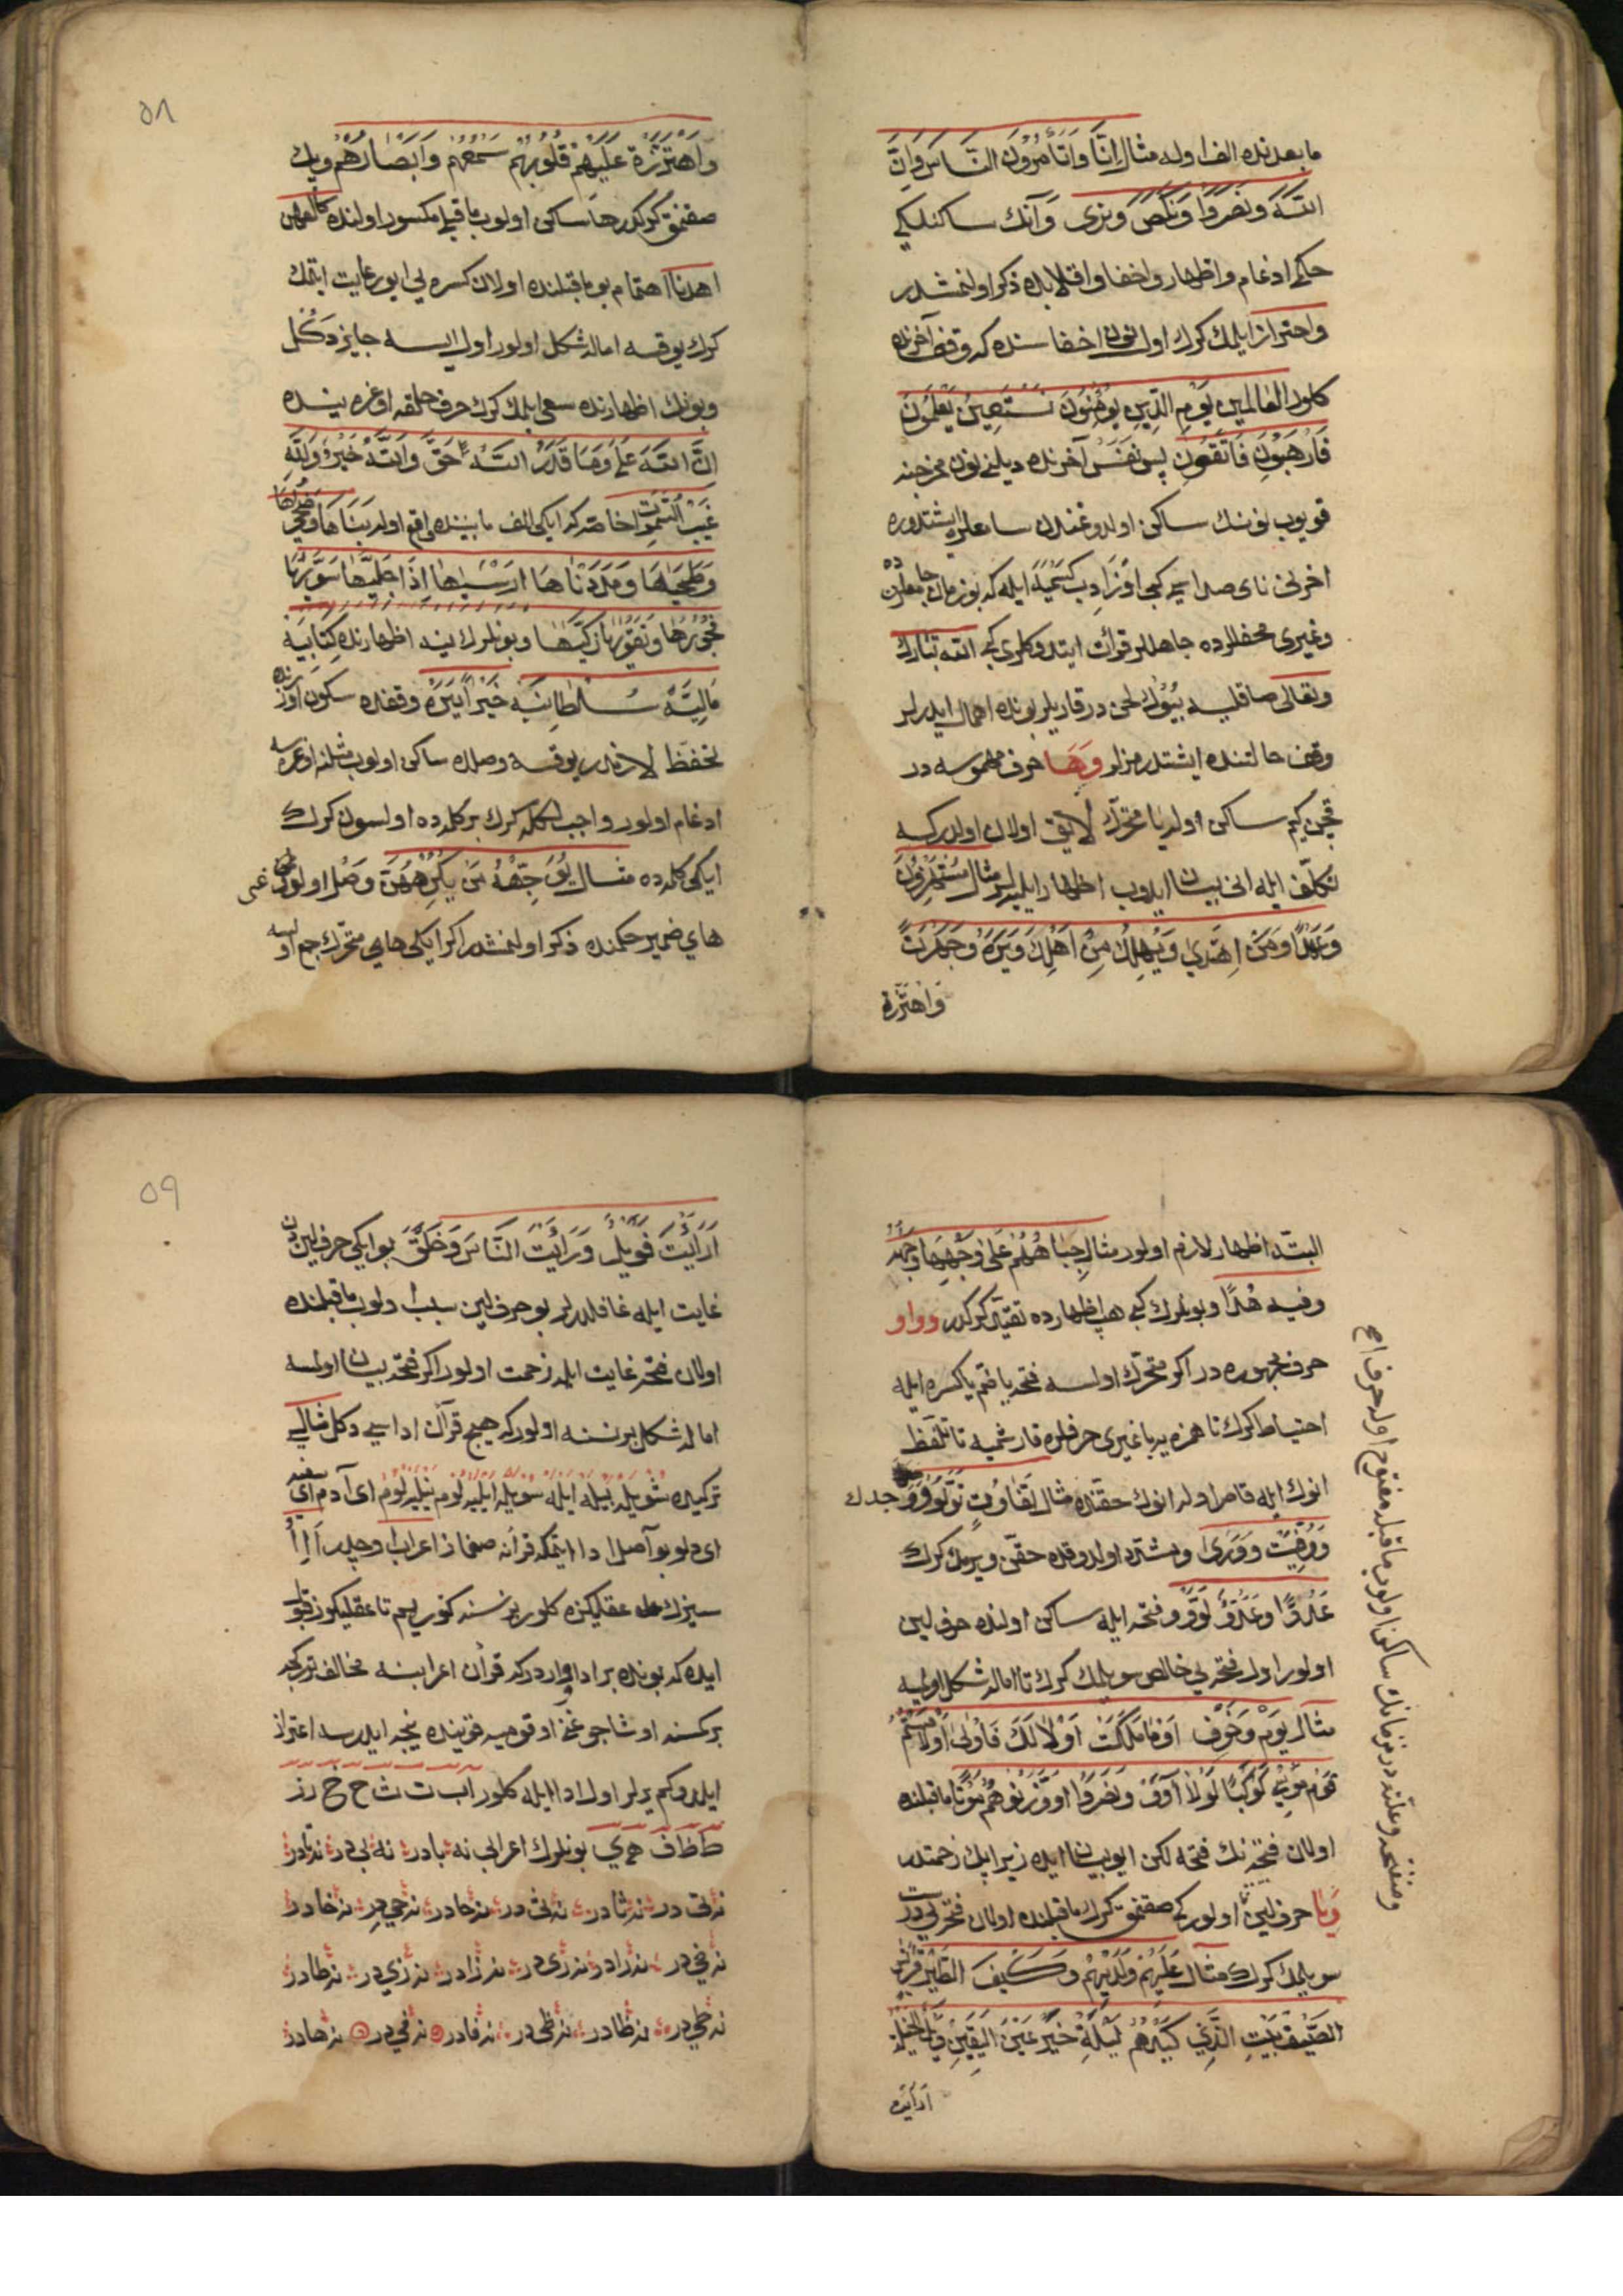 ما بعدنده الف اوله مثال اِنَّا وَاَتَأْمُرُونَ النَّاسَ وَاِنَّ
اللّٰهَ وَنَصَرُوا وَنَكَصَ وَنرٰى وَآنك ساكنلكی
حكمی ادغام و اظهار و اخفا و اقلابده ذكر اولنمشدر
و احتراز ایلمك كرك اول نونی اخفا سنده كه وقفه آخرنده
كلور العَالَمِينَ يَوْمِ الدِّينِ يُؤْمِنُونَ نَسْتَعِينُ يَعْلَمُونَ
فَارْهَبُونِ فَاتَّقُونِ پس نفس آخرنده دیلنی نون مخرجنه
قویوب نونك ساكن اولدوغندن سامعلره ایشتدوره
اخرلی نای صداسی كبی اوزادیب ایله كه بو زمان جامعلرنده
و غیری محفللرده جاهللر قرائت ایتدوكلری كبی الله تبارك
و تعالی صاقلیه بیوك لحن در قاریلر بونده اهمال ایدرلر
وقف حالتنده ایشتدرمزلر وَهَا حرف مهموسه در
قچن كیم ساكن اولدیا متحرك لایق اولان اولدركه
تكلّف ایله انی بیان ایدوب اظهار ایلیه لر مثال يَسْتَهْزِؤُنَ
وَعَهْدًا وَمَنْ اِهْتَدٰى وَيُهْلِكُ مِنْ اَهْلِكَ وَجَهْرَتً
وَاهْتَزَّتْ
٥٨
وَاهْتَزَّتْ عَلَيْهِمْ قُلُوبُهُمْ سَمْعُهُمْ وَاَبْصَارُهُمْ وپك
صقنمق كركدر ها ساكن اولوب ما قبلی مكسور اولنده
اهدنا اهتمام بو ما قبلنده اولان كسره یی ایو رعایت ایتمك
كرك یوقسه اماله شكل اولور اول ایسه جایز دَكُل
و بونك اظهارنده سعی ایلمك كرك حرف حلقه اوغره یسنده
اِنَّ اللّٰهَ عَلٰى وَمَا قَدَرُ اللّٰهَ حَقَّ وَاللّٰهُ خَيْرٌ وَلِلّٰهِ
غَيْبُ السَّمٰوَاتِ خاصّه كه ایكی الف مابیننده واقع اوله بَنٰيهَا وَضُحٰيهَا
وَطَحٰيهَا وَمَدَدْنَاهَا اَرْسٰيهَا اِذَا جَلّٰيهَا سَوّٰيهَا
فُجُورَهَا وَتَقْوٰيهَا زَكّٰيهَا و بونلرك ینه اظهارنده كِتَابِيَهْ
مَالِيَهْ سُلْطَانِيَهْ خَيْرًا يَرَهْ وقفده سكون اوزرنده
تحفّظ لازمدر یوقسه وصلده ساكن اولوب مثلنه اوغرسه
ادغام اولور واجب كلمه كرك بر كلمه ده اولسون كرك
ایكی كلمه ده مثال يُوَجِّهْهُ مَنْ يُكْرِهْهُنَّ وصل اولور
های ضمیر حكمنده ذكر اولنمشدر اكر ایكی هایی متحرك جمع اولسه
البتّه اظهار لازم اولور مثال جِبَاهُهُمْ عَلٰى وَجْهِهَا وَجْهَهُ
وفیه هُدًا و بونلرك كبی هپ اظهارده تقیّد كركدر وَواو
حرف مجهوره در اكر متحرّك اولسه فتحه یا ضم یا كسره ایله
احتیاط كرك تا همزه یه یا غیری حرفلره قارشمیه تا تلفّظ
انوك ایله قاصر اولمه انوك حقنده مثال تَفَاوُتٍ
وَوُفِّيَتْ وَوَرٰى و مشدّد اولدوقده حقّن ویرمك كرك
عَدُوًّا وَعَدُوٌّ لَوَّوْ و فتحه ایله ساكن اولنده حرف لین
اولور اول فتحه یی خالص سویلمك كرك تا اماله شكل اولمیه
مثال يَوْمَ وَخَوْفٍ اَوْ مَا مَلَكَتْ اَوْلٰى لَكَ فَاَوْلٰى
قَوْمِ مُوسٰى كَوْكَبًا لَوْلَا اَوْفَى وَنَصَرُوا اَوْ وَزَنُوهُمْ ما قبلنده
اولان فتحه نك فتحه لكن ایو بیان ایده زیرا پك زحمتدر
وَيا حرف لین اولورسه صقنمق كرك ما قبلنده اولان فتحه یی درست
سویلمك كرك مثال عَلَيْهِمْ وَلَدَيْهِمْ وَكَيْفَ الطَّيْرَ قُرَيْشٍ
الصَّيْفِ بَيْتِ الَّذِي كَيْدَهُمْ لَيْلَةِ خَيْرٌ عَيْنَ الْيَقِينِ
اَرَاَيْتَ
٥٩
اَرَاَيْتَ فَوَيْلٌ وَرَاَيْتَ النَّاسَ وَخَلَقَ بو ایكی حرف لیندن
غایت ایله غافللردر بو حرف لین سبب اولوب ما قبلنده
اولان فتحه غایت ایله زحمت اولور اكر فتحه بیان اولسه
اماله شكل بر نسنه اولور كه هیچ قرآن اداسی دكل مثالی
تركیده شویله بیله ایله سویله ایلیه لوم نیلیه لوم ای آدم ای
ای دلو بو آصل ادا ایتمكه قرآنه صفماز اعراب اوچدر اَ اِ اُ
سیزك عقلیكزه كلور بر نسنه كوریم تا عقلیكوز قبول
ایده كه بونده بر ادا واردر كه قرآن اعرابنه مخالف تركجه
بر كسنه اوشاجوغنی اوقومیه قوینده نیجه ایدرسه اعتراز
ایلدوكم یرلر اول ادا ایله كلور ا ب ت ث ح خ ر ز
ط ظ ف ه ی بونلرك اعرابی نه با در نه بی در نه تا در
نه تی در نه ثا در نه ثی در نه حا در نه حی در نه خا در
نه خی در نه را در نه ری در نه زا در نه زی در نه طا در
نه طی در نه ظا در نه ظی در نه فا در نه فی در نه ها در